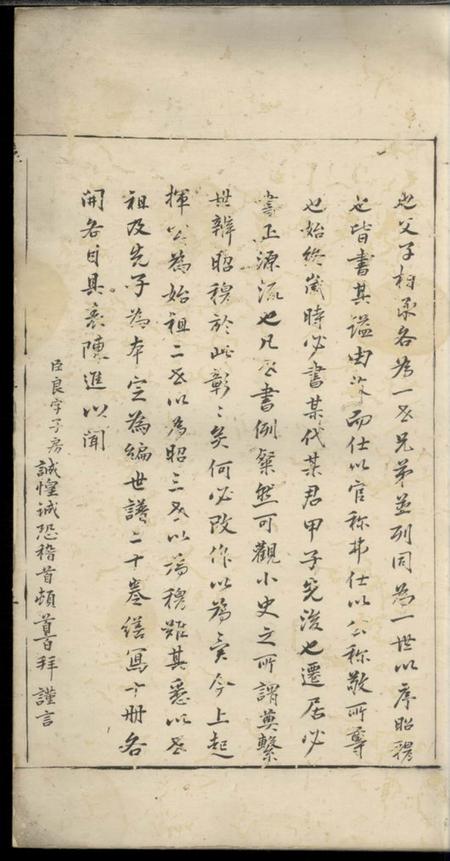 也父子相承各為一世兄弟並列同為一世以序昭穆
也皆書其諡由父而仕以官称弗仕以公称敬所尊
也始終歲時必書某代某君甲子先後也遷居必
書正源流也凡世書例粲然可觀小史之所謂奠繫
世辨昭穆於此彰〻矣何必改作以為寅今上起
揮公為始祖二世以為昭三世以為穆雖其悉以世
祖及先子為本宗為編世譜二十卷繕寫十冊各
開各目具表陳進以聞
臣良字子房誠惶诚恐稽首頓首百拜謹言